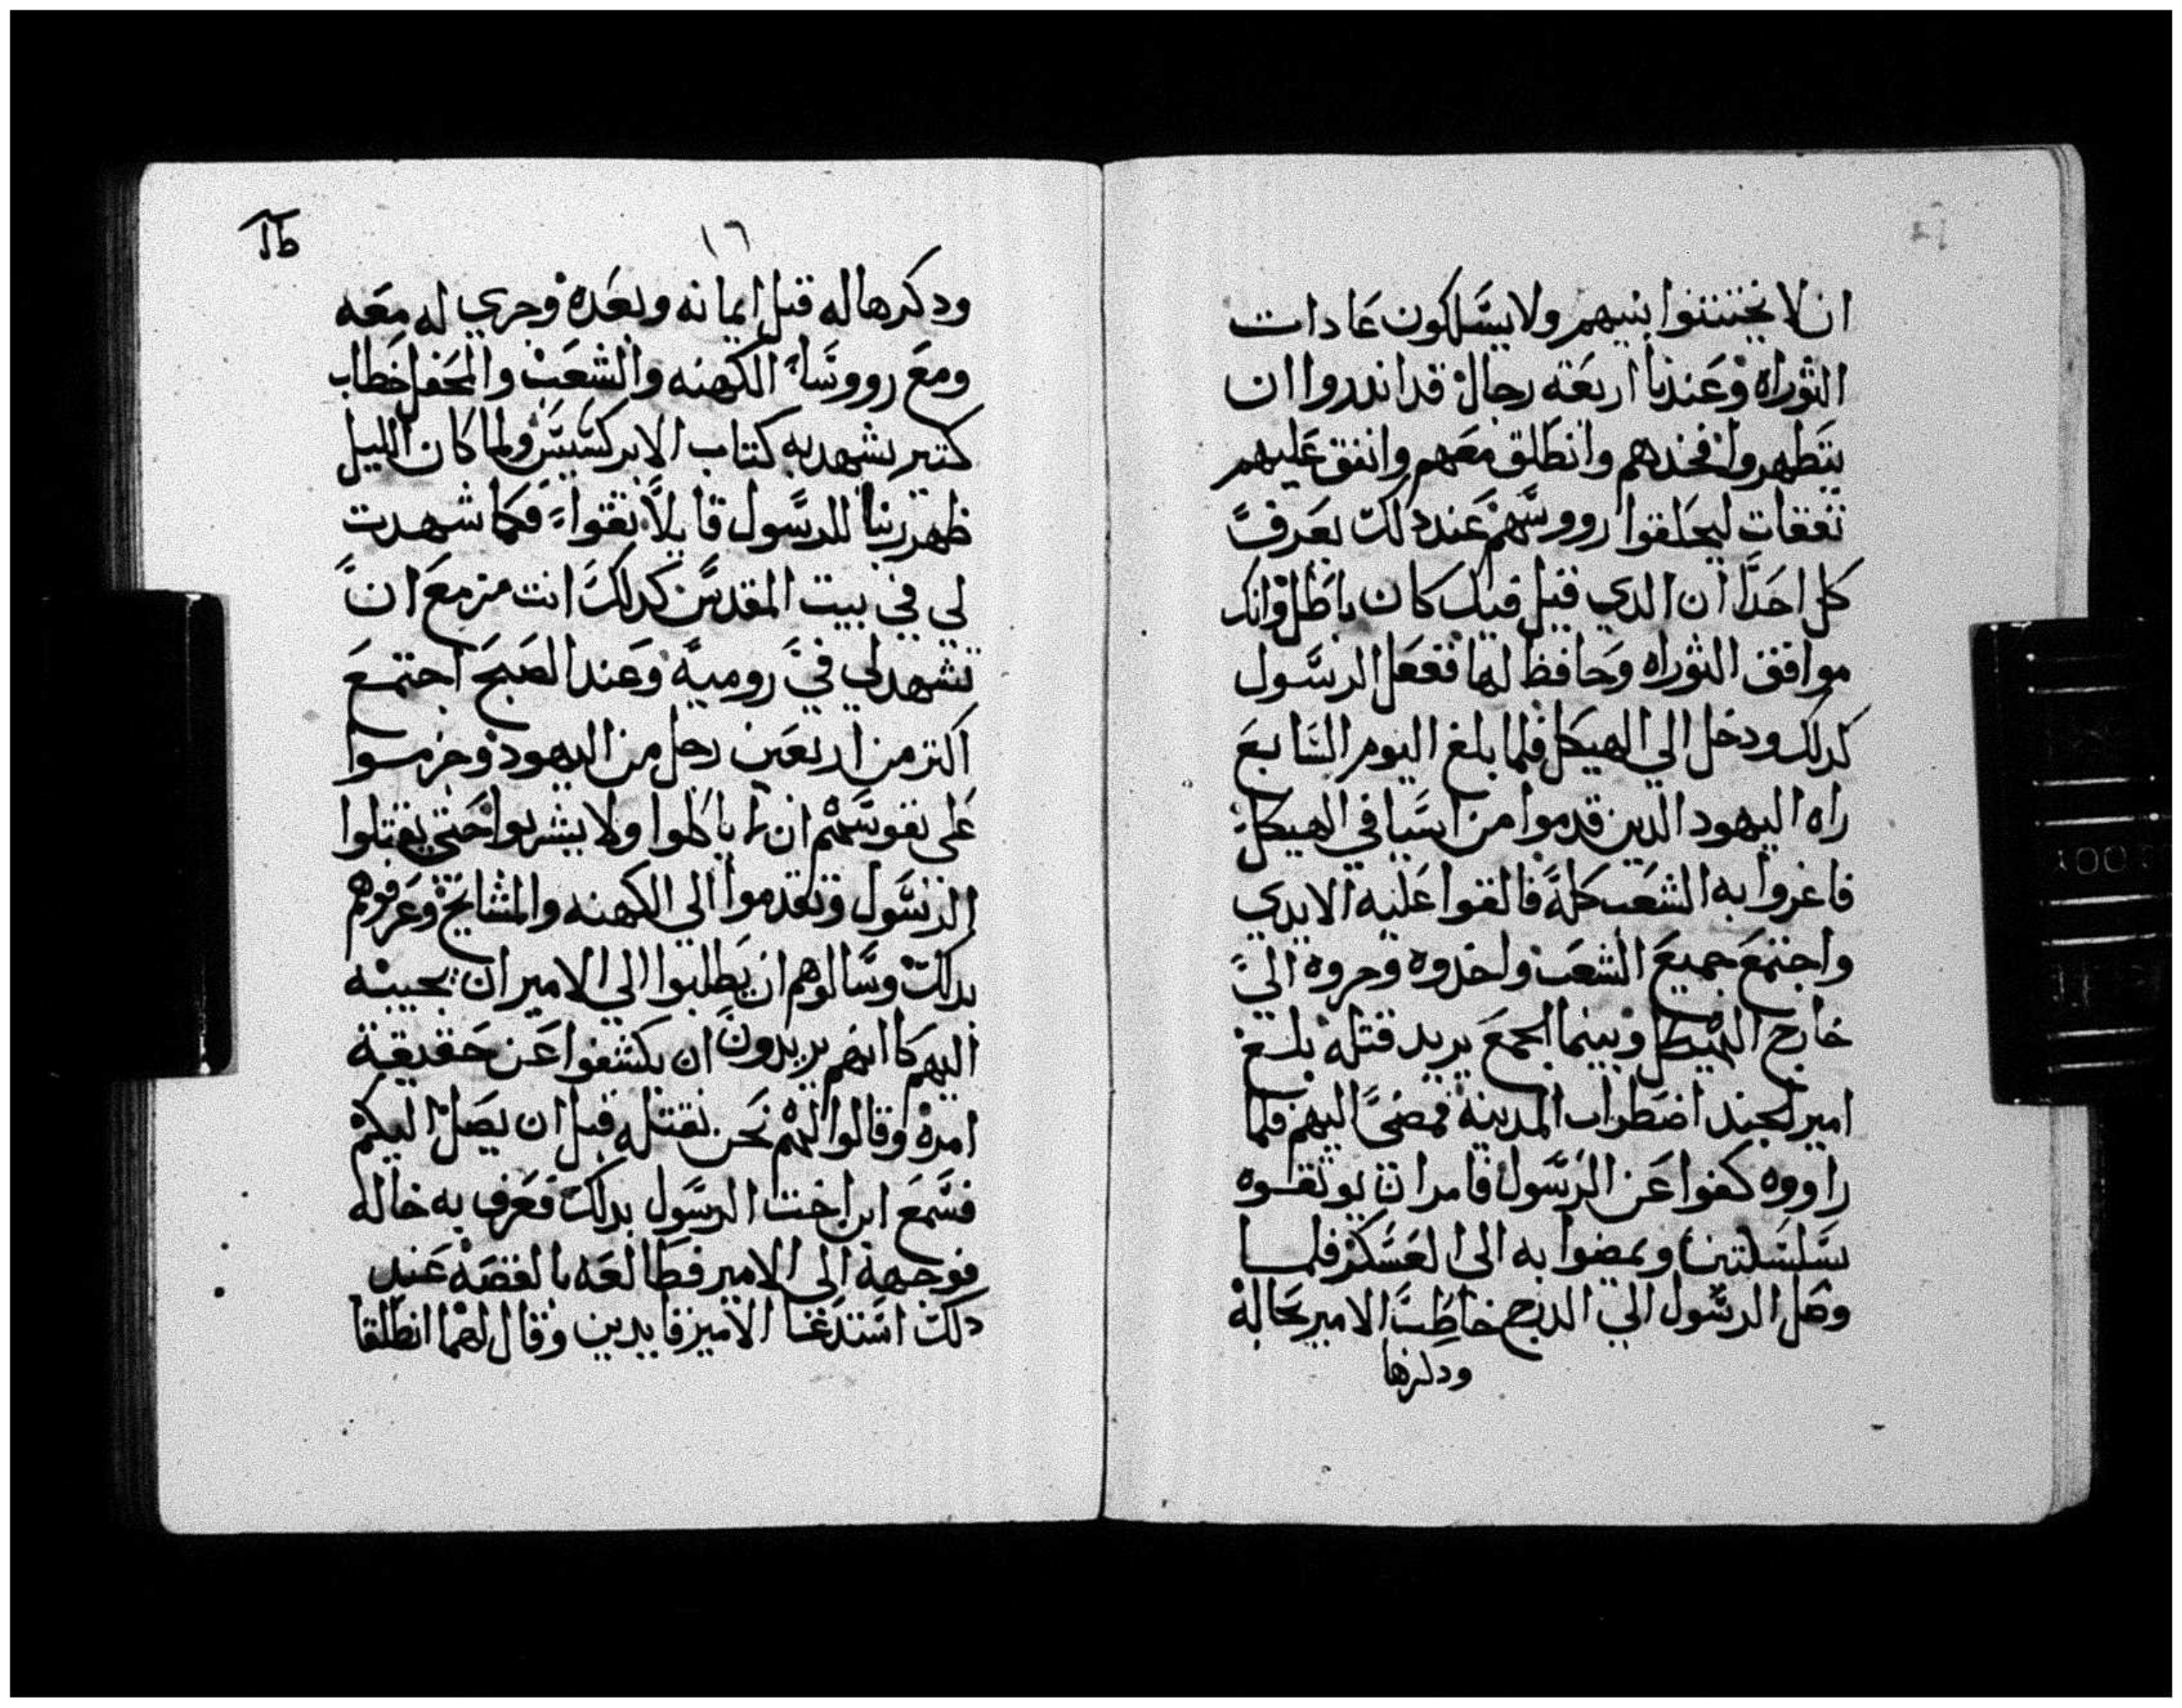 ان لا يختتنوا بنيهم ولا يسلكون عادات
التوراه وعندنا اربعة رجال قد اندروا ان
يتطهروا فخدهم وانطلق معهم وانفق عليهم
نفقات ليحلقوا رووسهم عند دلك يعرف
كل احدا ان الدي قيل فيك كان باطل وانك
موافق التوراه وحافظ لها ففعل الرسول
كدلك ودخل الي الهيكل فلما بلغ اليوم السابع
راه اليهود الدين قدموا من اسيا في الهيكل
فاغروا به الشعب كله فالقوا عليه الايدي
واجتمع جميع الشعب واخدوه وجروه الي
خارج الهيكل وبينما الجمع يريد قتله بلغ
امير الجند اضطراب المدينة فمضي اليهم فلما
راووه كفوا عن الرسول فامر ان يوثقوه
بسلسلتين ويمضوا به الى العسكر فلما
وصل الرسول الي الدرج خاطب الامير بحاله
ودكرها
١٦
ودكرها له قبل ايمانه وبعده وجري له معه
ومع رووسا الكهنه والشعب والمحفل خطاب
كتير يشهد به كتاب الابركسيس ولما كان الليل
ظهر ربنا للرسول قايلا تقوا فكما شهدت
لي في بيت المقدس كدلك انت مزمع ان
تشهد لي في رومية وعند الصبح اجتمع
اكتر من اربعين رجل من اليهود وحرموا
على نفوسهم ان لا ياكلوا ولا يشربوا حتي يقتلوا
الرسول وتقدموا الي الكهنه والمشايخ وعرفوهم
بدلك وسالوهم ان يطلبوا الي الامير ان يجيبه
اليهم كانهم يريدون ان يكشفوا عن حقيقة
امره وقالوا لهم نحن نقتله قبل ان يصل اليكم
فسمع ابن اخت الرسول بدلك فعرف به خاله
فوجهه الى الامير فطالعه بالقصة عند
دلك استدعا الامير قايدين وقال لهما انطلقا